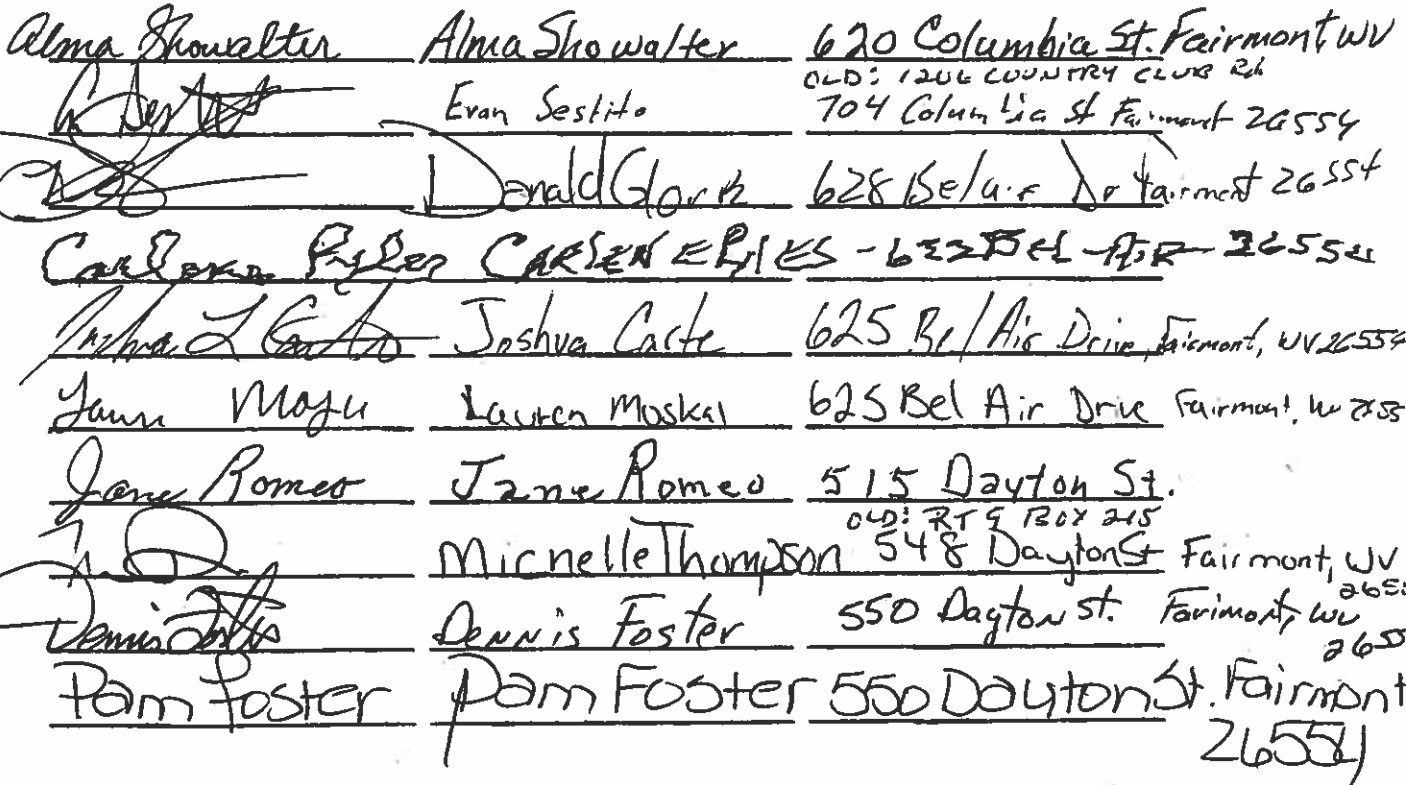 Alma Showalter Alma Showalter 620 Columbia St. Fairmont, WV
OLD: 1206 COUNTRY CLUB Rd
Evan Sestito 704 Columbia St Fairmont 26554
Donald 628 Belair Dr Fairmont 26554
CARLENE PYLES - 622 BEL-AIR 26554
Joshua Carte 625 Bel Air Drive, Fairmont, WV 26554
Lauren Moskal 625 Bel Air Drive Fairmont, WV 2655
Jane Romeo Jane Romeo 515 Dayton St.
OLD: RT 9 BOX 215
Michelle Thompson 548 Dayton St Fairmont, WV
2655
Dennis Foster Dennis Foster 550 Dayton St. Farimont, WV
2655
Pam Foster Pam Foster 550 Dayton St. Fairmont
26554